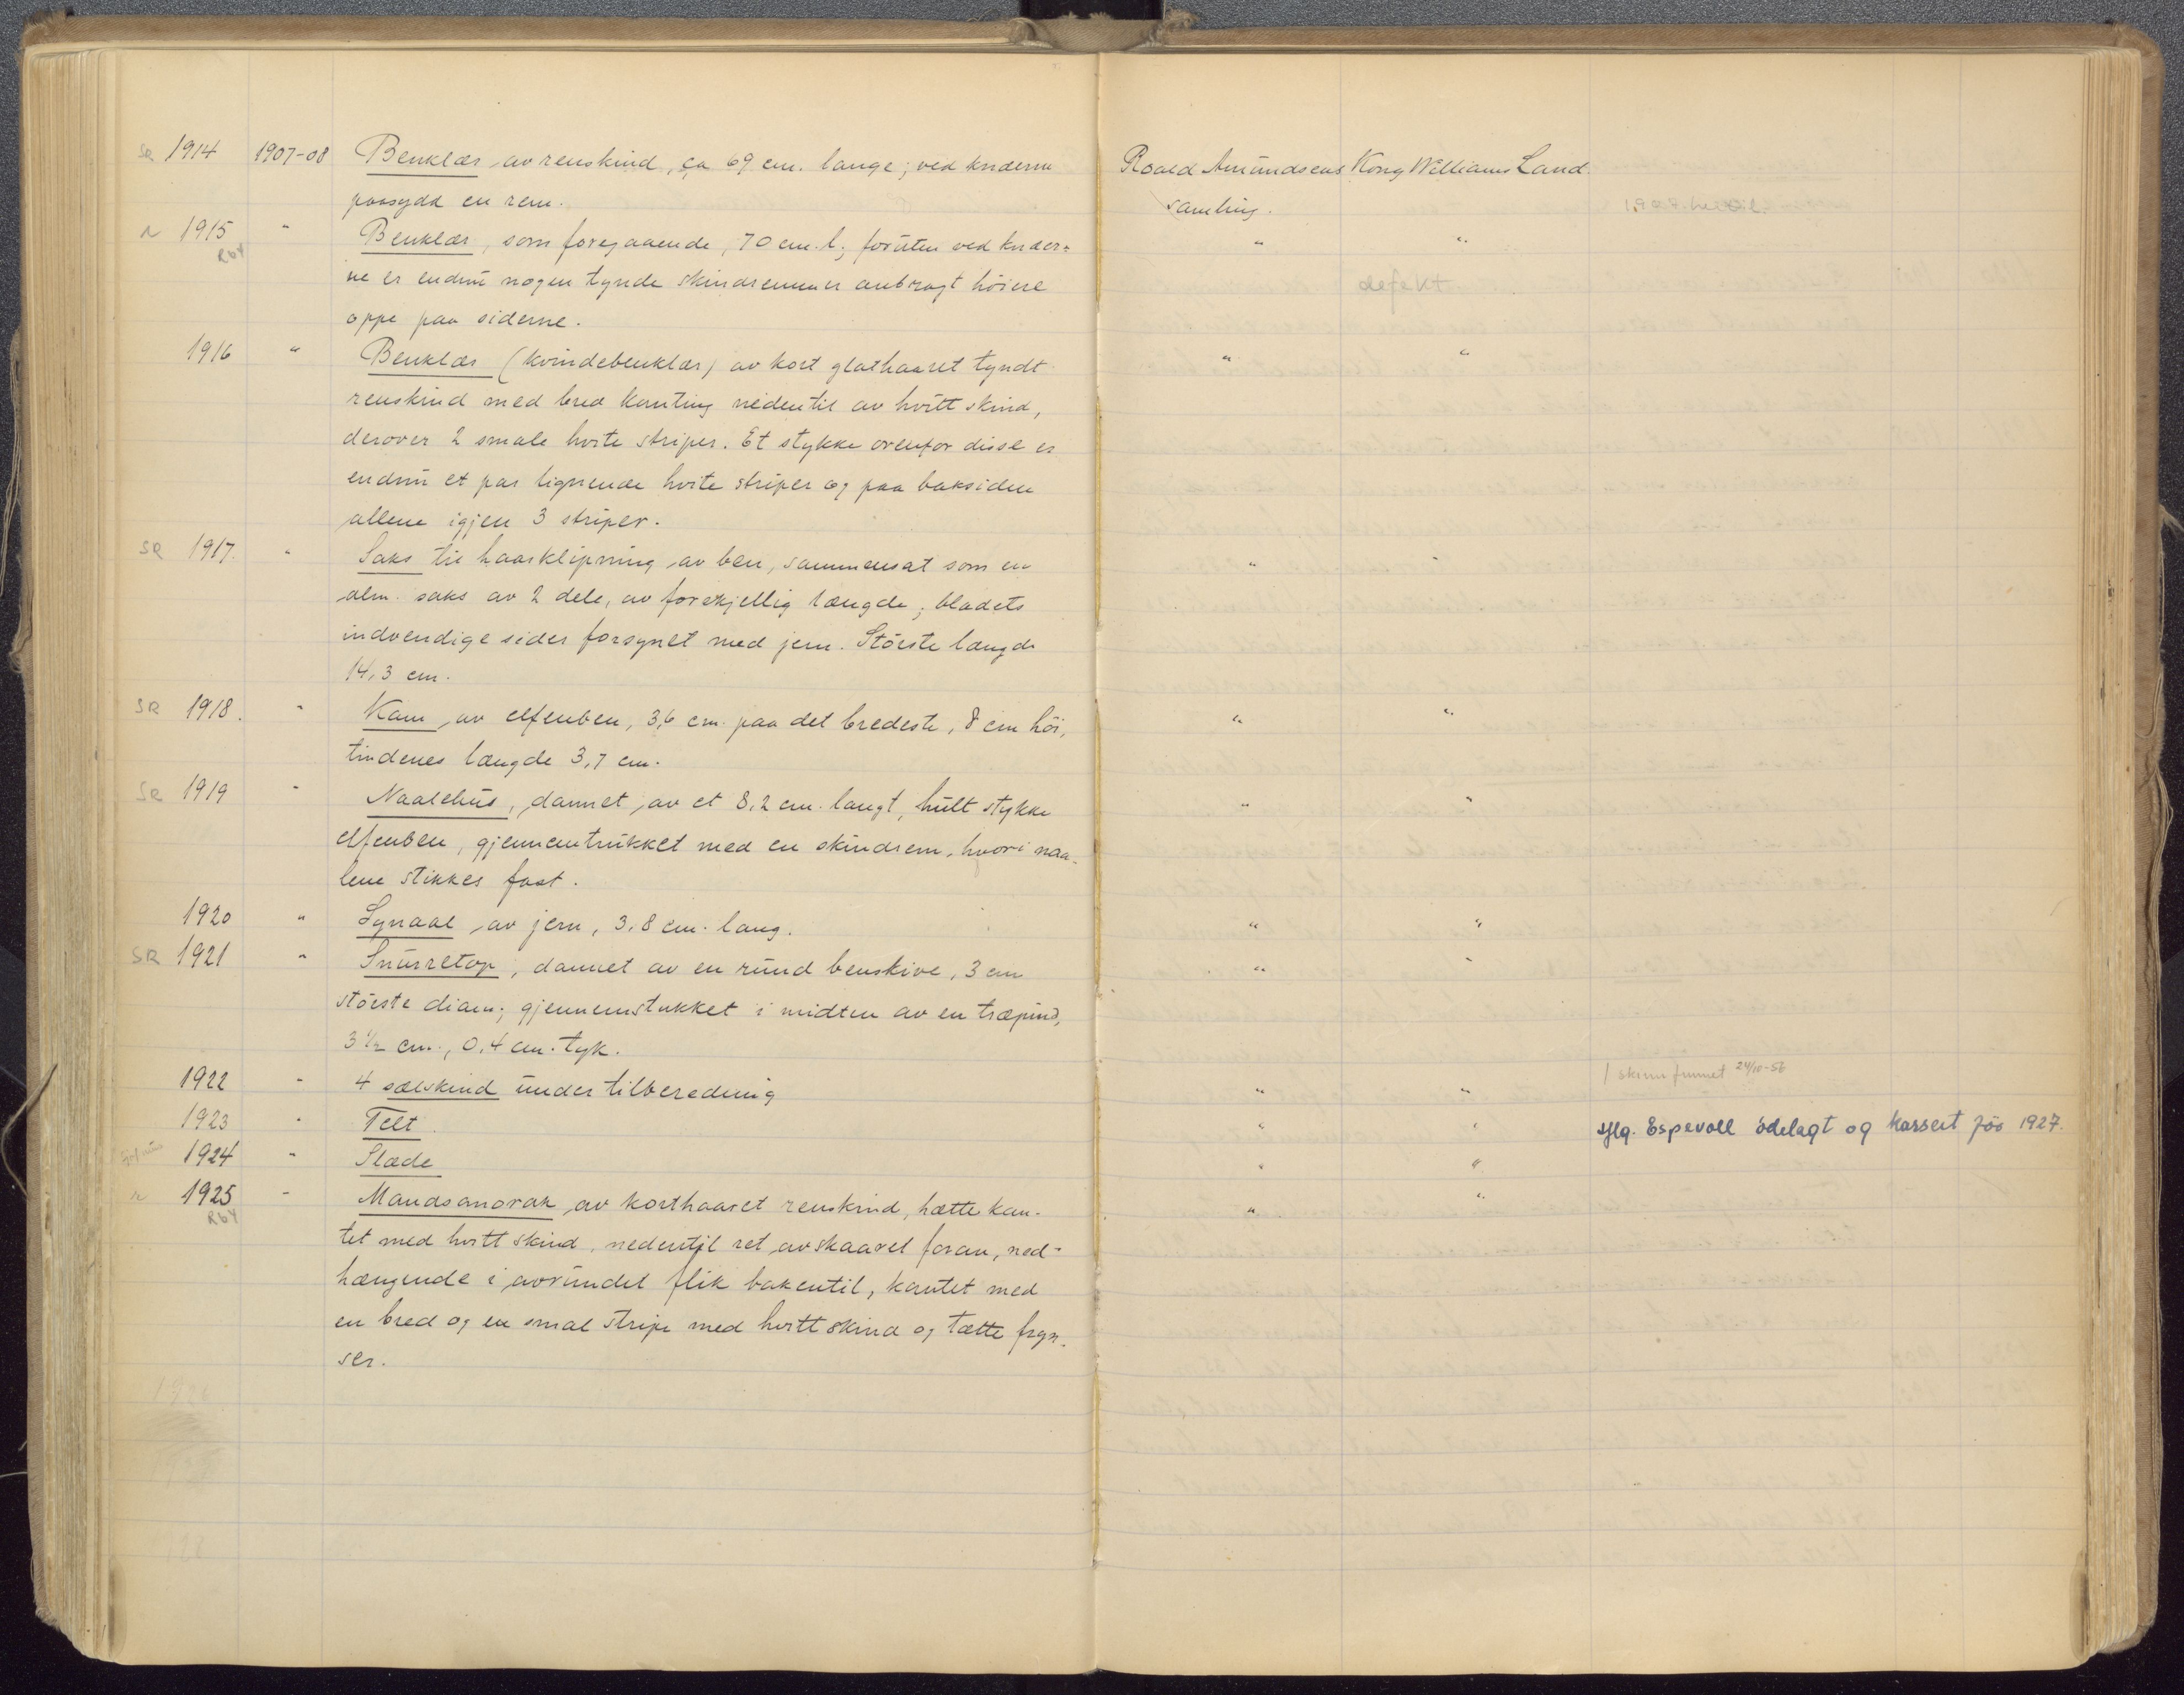 SR 1914 1907-08 Benklær av renskind, ca 69 cm. lange; ved knærne Roald Amundsens Kong Williams Land.
paasydd en rem. samling.
r 1915 " Benklær, som foregaaende, 70 cm. l.; foruten ved knær= " "
R64
ne er endnu nogen tynde skindremmer anbragt höiere defekt.
oppe paa siderne.
1916 " Benklær (kvindebenklær) av kort glathaaret tyndt " "
renskind med bred kanting nedentil av hvitt skind,
derover 2 smale hvite striper. Et stykke ovenfor disse er
endnu et par lignende hvite striper og paa baksiden
allene igjen 3 striper.
SR 1917. " Saks til haarklipning av ben, sammensat som en " "
alm. saks av 2 dele, av forskjellig længde; bladets
indvendige sider forsynet med jern. Störste længde
14,3 cm.
SR 1918. " Kam av elfenben, 3,6 cm. paa det bredeste, 8 cm höi, " "
tindenes længde 3,7 cm.
SR 1919 " Naalehus, dannet av et 8,2 cm. langt, hult stykke " "
elfenben, gjennemtrukket med en skindrem, hvori naa-
lene stikkes fast.
1920 " Synaal av jern, 3,8 cm. lang. " "
SR 1921 " Snurretop, dannet av en rund benskive, 3 cm " "
störste diam; gjennemstukket i midten av en træpind,
3 1/2 cm., 0,4 cm. tyk.
1922 " 4 sælskind under tilberedning " " 1 skinn funnet 24/10-56
1923 " Telt. " " iflg. Espevoll ödelagt og kassert för 1927.
1924 " Slæde " "
r 1925 " Mandsanorak av korthaaret renskind, hætte kan- " "
R64
tet med hvitt skind, nedentil ret avskaaret foran, ned-
hængende i avrundet flik bakentil, kantet med
en bred og en smal stripe med hvitt skind og tætte fryn-
ser.